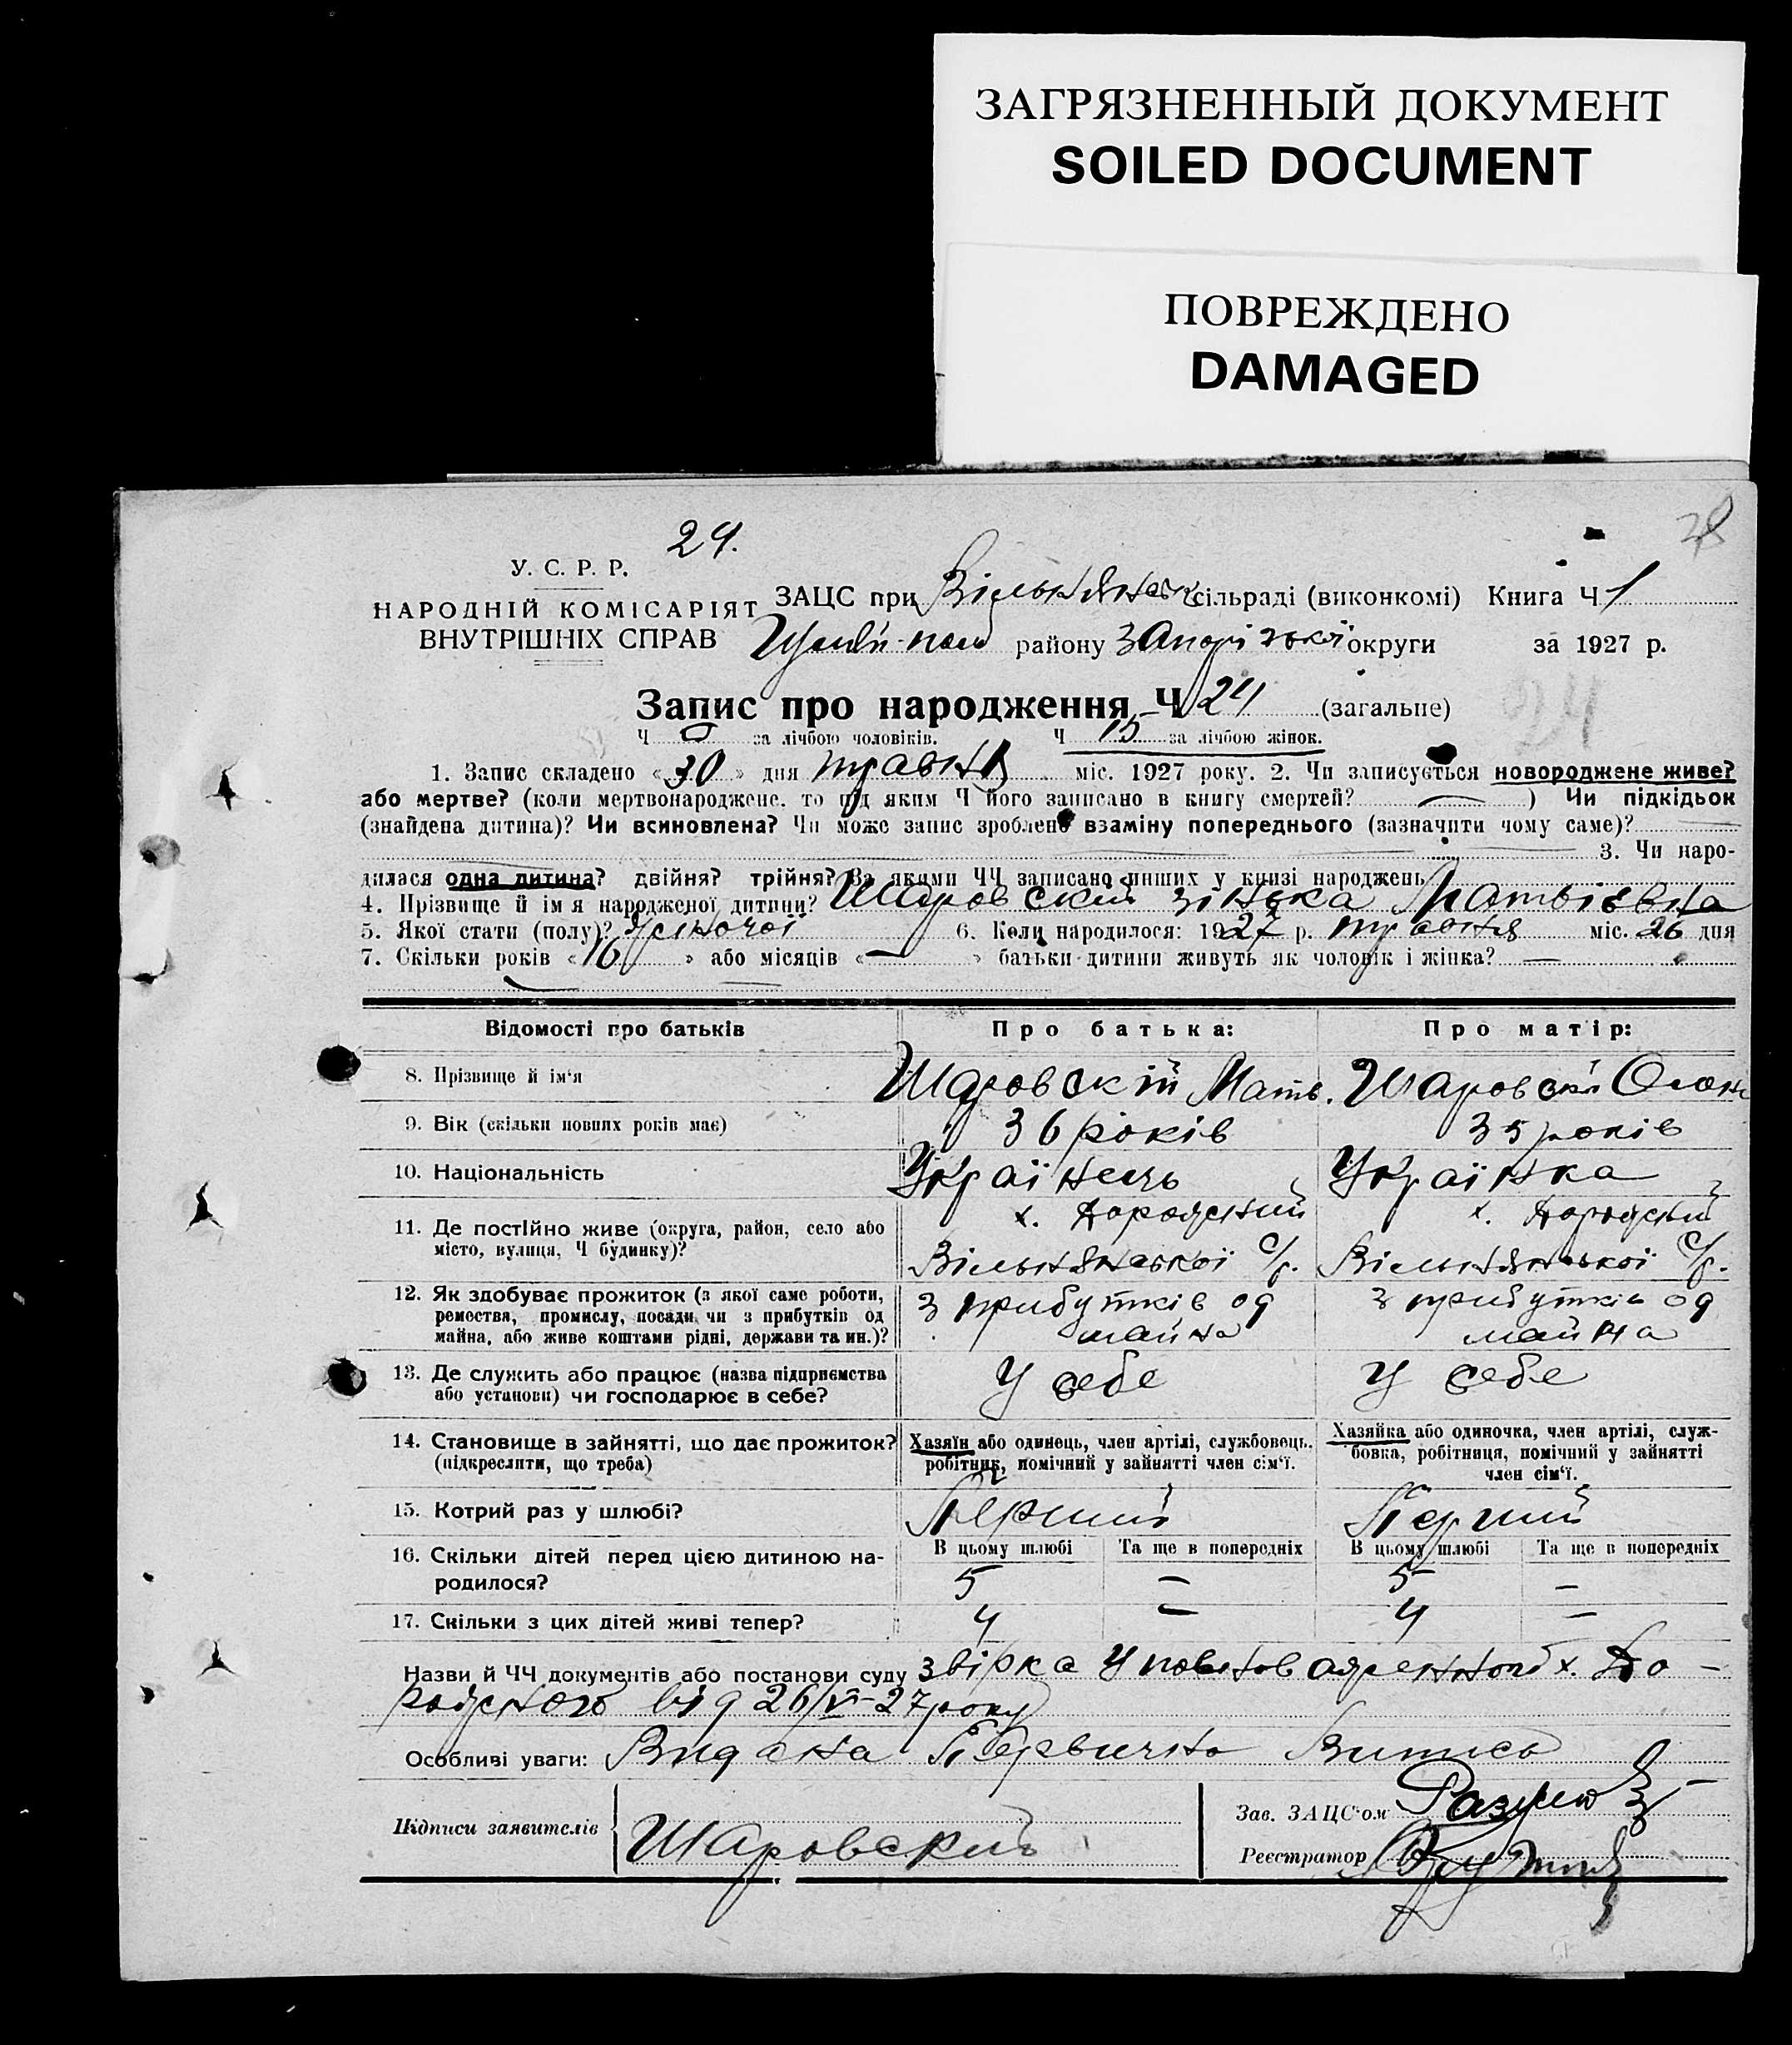 ЗАГРЯЗНЕННЫЙ ДОКУМЕНТ
SOILED DOCUMENT
ПОВРЕЖДЕНО
DAMAGED
24.
У. С. Р. Р.
НАРОДНІЙ КОМІСАРІЯТ
ВНУТРІШНІХ СПРАВ
ЗАЦС при Вільнянськ сільраді (виконкомі) Книга Ч 1
району Запорізької округи за 1927 р.
Запис про народження Ч 24 (загальне)
24
Ч за лічбою чоловіків. Ч 15 за лічбою жінок.
1. Запис складено «30» дня травня міс. 1927 року. 2. Чи записується новороджене живе?
або мертве? (коли мертвонароджене, то під яким Ч його записано в книгу смертей? — ) Чи підкідьок
(знайдена дитина)? Чи всиновлена? Чи може запис зроблено взаміну попереднього (зазначити чому саме)? —
— 3. Чи наро-
дилася одна дитина? двійня? трійня? За якими ЧЧ записано инших у книзі народжень
4. Прізвище й ім'я народженої дитини? Шаровский Зінька Матвіївна
5. Якої стати (полу)? Жіночої 6. Коли народилося: 1927 р. травня міс. 26 дня
7. Скільки років «16» або місяців «—» батьки дитини живуть як чоловік і жінка? —
Відомості про батьків Про батька: Про матір:
8. Прізвище й ім'я Шаровскій Матв. Шаровскі
9. Вік (скільки повних років має) 36 років 35 років
10. Національність Українець Українка
11. Де постійно живе (округа, район, село або
місто, вулиця, Ч будинку)?
Вільнянської с/р. Вільнянської с/р.
12. Як здобуває прожиток (з якої саме роботи,
ремества, промислу, посади чи з прибутків од
майна, або живе коштами рідні, держави та ин.)?
з прибутків од майна з прибутків од майна
13. Де служить або працює (назва підприємства
або установи) чи господарює в себе?
У себе У себе
14. Становище в зайнятті, що дає прожиток?
(підкреслити, що треба)
Хазяїн або одинець, член артілі, службовець,
робітник, помічний у зайнятті член сім'ї.
Хазяйка або одиночка, член артілі, служ-
бовка, робітниця, помічний у зайнятті
член сім'ї.
15. Котрий раз у шлюбі? Перший Перший
16. Скільки дітей перед цією дитиною на-
родилося?
В цьому шлюбі Та ще в попередніх В цьому шлюбі Та ще в попередніх
5 — 5 —
17. Скільки з цих дітей живі тепер? 4 — 4 —
Назви й ЧЧ документів або постанови суду звірка х. До-
від 26/VI-27 року
Особливі уваги: Видана Первична Витись
Підписи заявителів Шаровский
Зав. ЗАЦС'ом
Реєстратор